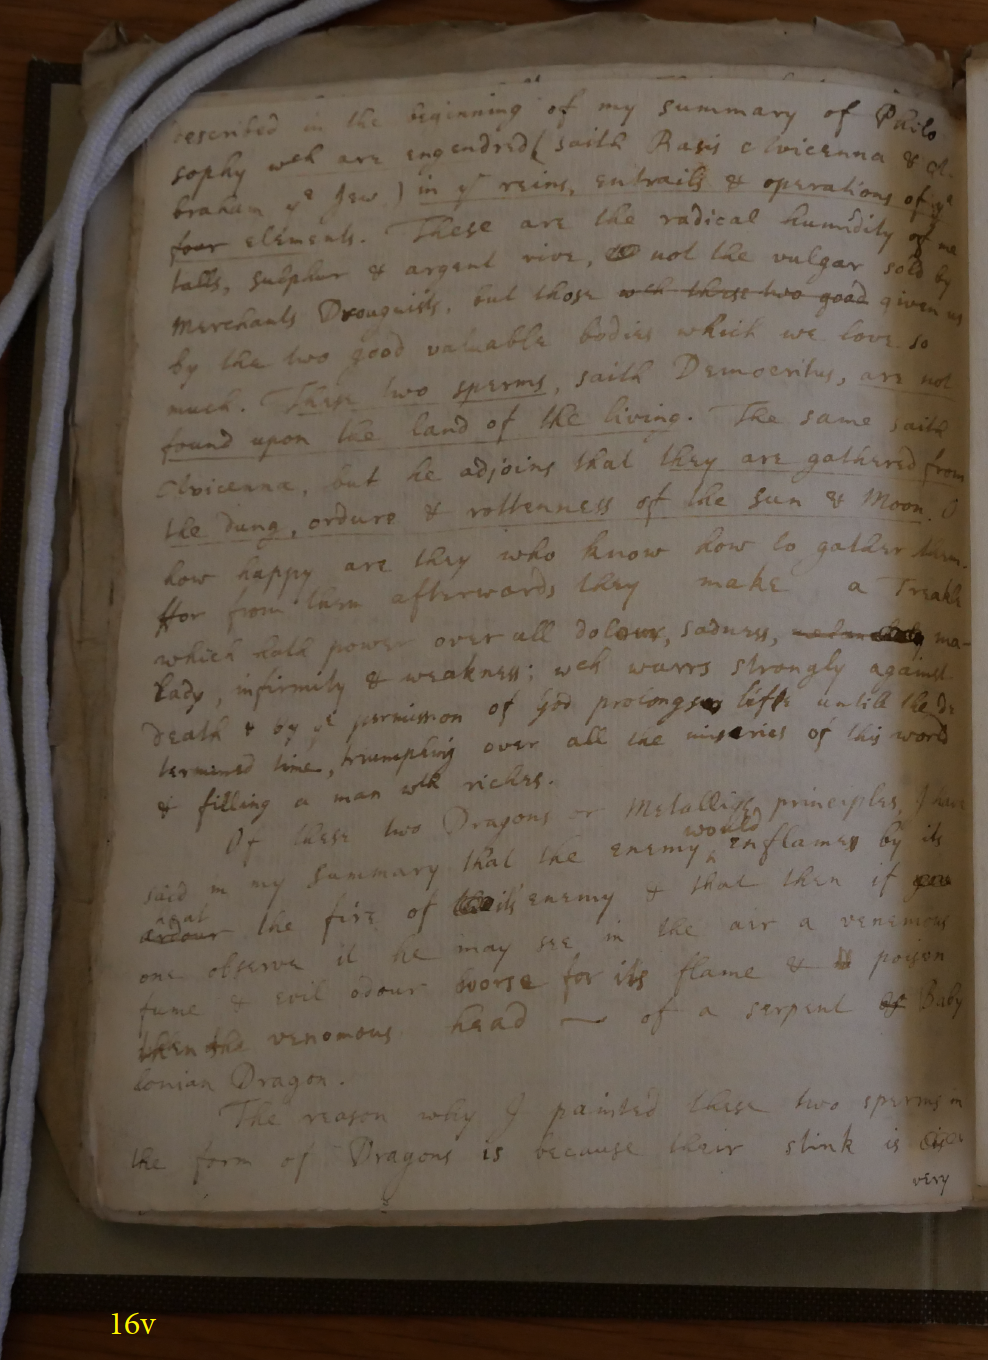 described in the beginning of my summary of Philo
sophy wch are engendred (saith Rasis Avicenna & A
braham ye Jew) in ye reins, entrails & operations of ye
four elements. These are the radical humidity of me
talls, sulphur & argent vive, not the vulgar sold by
Merchants Drouguists, but those wch these two good given us
by the two good valuable bodies which we love so
much. These two sperms, saith Democritus, are not
found upon the land of the living. The same saith
Avicenna, but he adjoins that they are gathered from
the dung, ordure & rottenness of the Sun & Moon. O
how happy are they who know how to gather them.
ffor from them afterwards they make a Treakle
which hath power over all dolour, sadness, ma-
lady, infirmity & weakness; wch warrs strongly against
death & by ye permission of God prolongs life untill the de
termined time, triumphing over all the miseries of this world
& filling a man wth riches.
Of these two Dragons or Metallick principles, I have
said in my summary that the enemy would enflame by its
heat
ardour the fire of its enemy & that then if
one observe it he may see in the air a venemous
fume & evil odour worse for its flame & poison
then the venomous head — of a serpent of Baby
lonian Dragon.
The reason why I painted these two sperms in
the form of Dragons is because their stink is
very
16v